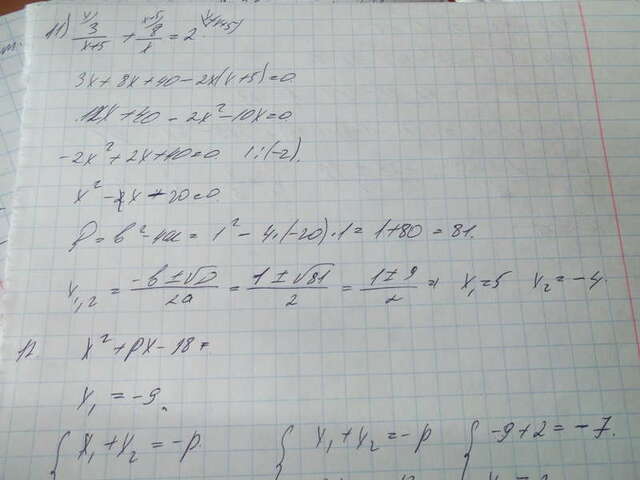 11) 3/(x+5) + 8/x = 2
3x + 8x + 40 - 2x(x+5) = 0
12x + 40 - 2x² - 10x = 0
-2x² + 2x + 40 = 0 | :(-2).
x² - x - 20 = 0
D = b² - 4ac = 1² - 4·(-20)·1 = 1 + 80 = 81.
x₁,₂ = (-b ± √D)/2a = (1 ± √81)/2 = (1 ± 9)/2 = x₁ = 5 x₂ = -4.
12 x² + px - 18 =
x₁ = -9.
{ x₁ + x₂ = -p. { x₁ + x₂ = -p { -9 + 2 = -7.